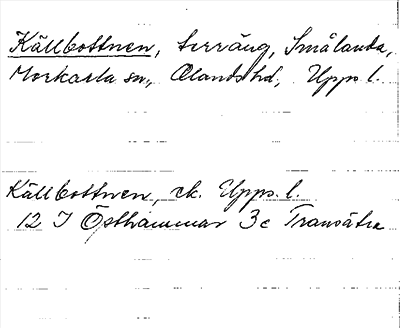 Källbottnen, terräng, Smålanda,
Morkarla sn., Olands hd, Upps. l.
Källbottnen, ek. Upps. l.
12 I Östhammar 3c Tranvätra